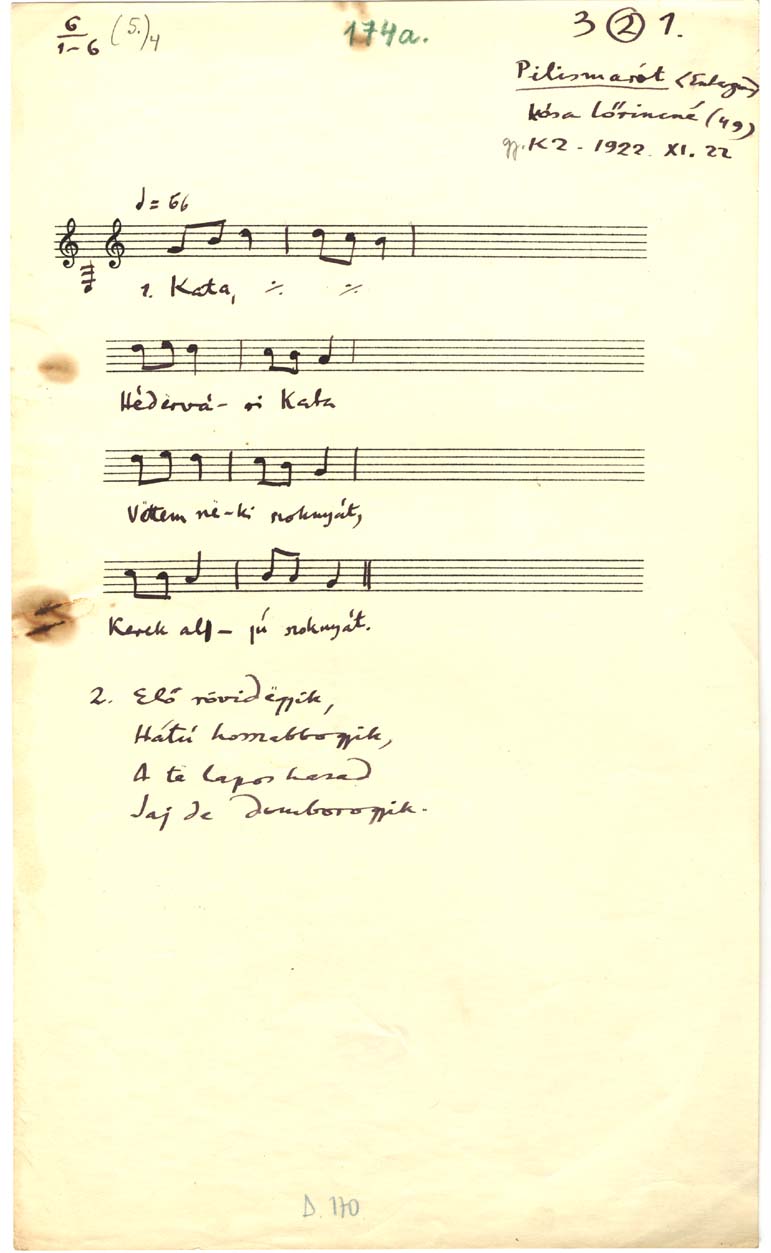 6
1-6
(5.)4
174a.
3 2 1.
Pilismarót (Esztergom)
Kósa Lőrincné (49)
gy. KZ - 1922. XI. 22
= 66
1. Kata, ·/. ·/.
Hédërvá- ri Kata
Vëttem në-ki szoknyát,
Kerek all- jú szoknyát.
2. Elő rövidëggyik,
Hátú hosszabboggyik,
A të lapos hasad
Jaj de domboroggyik.
D. 170